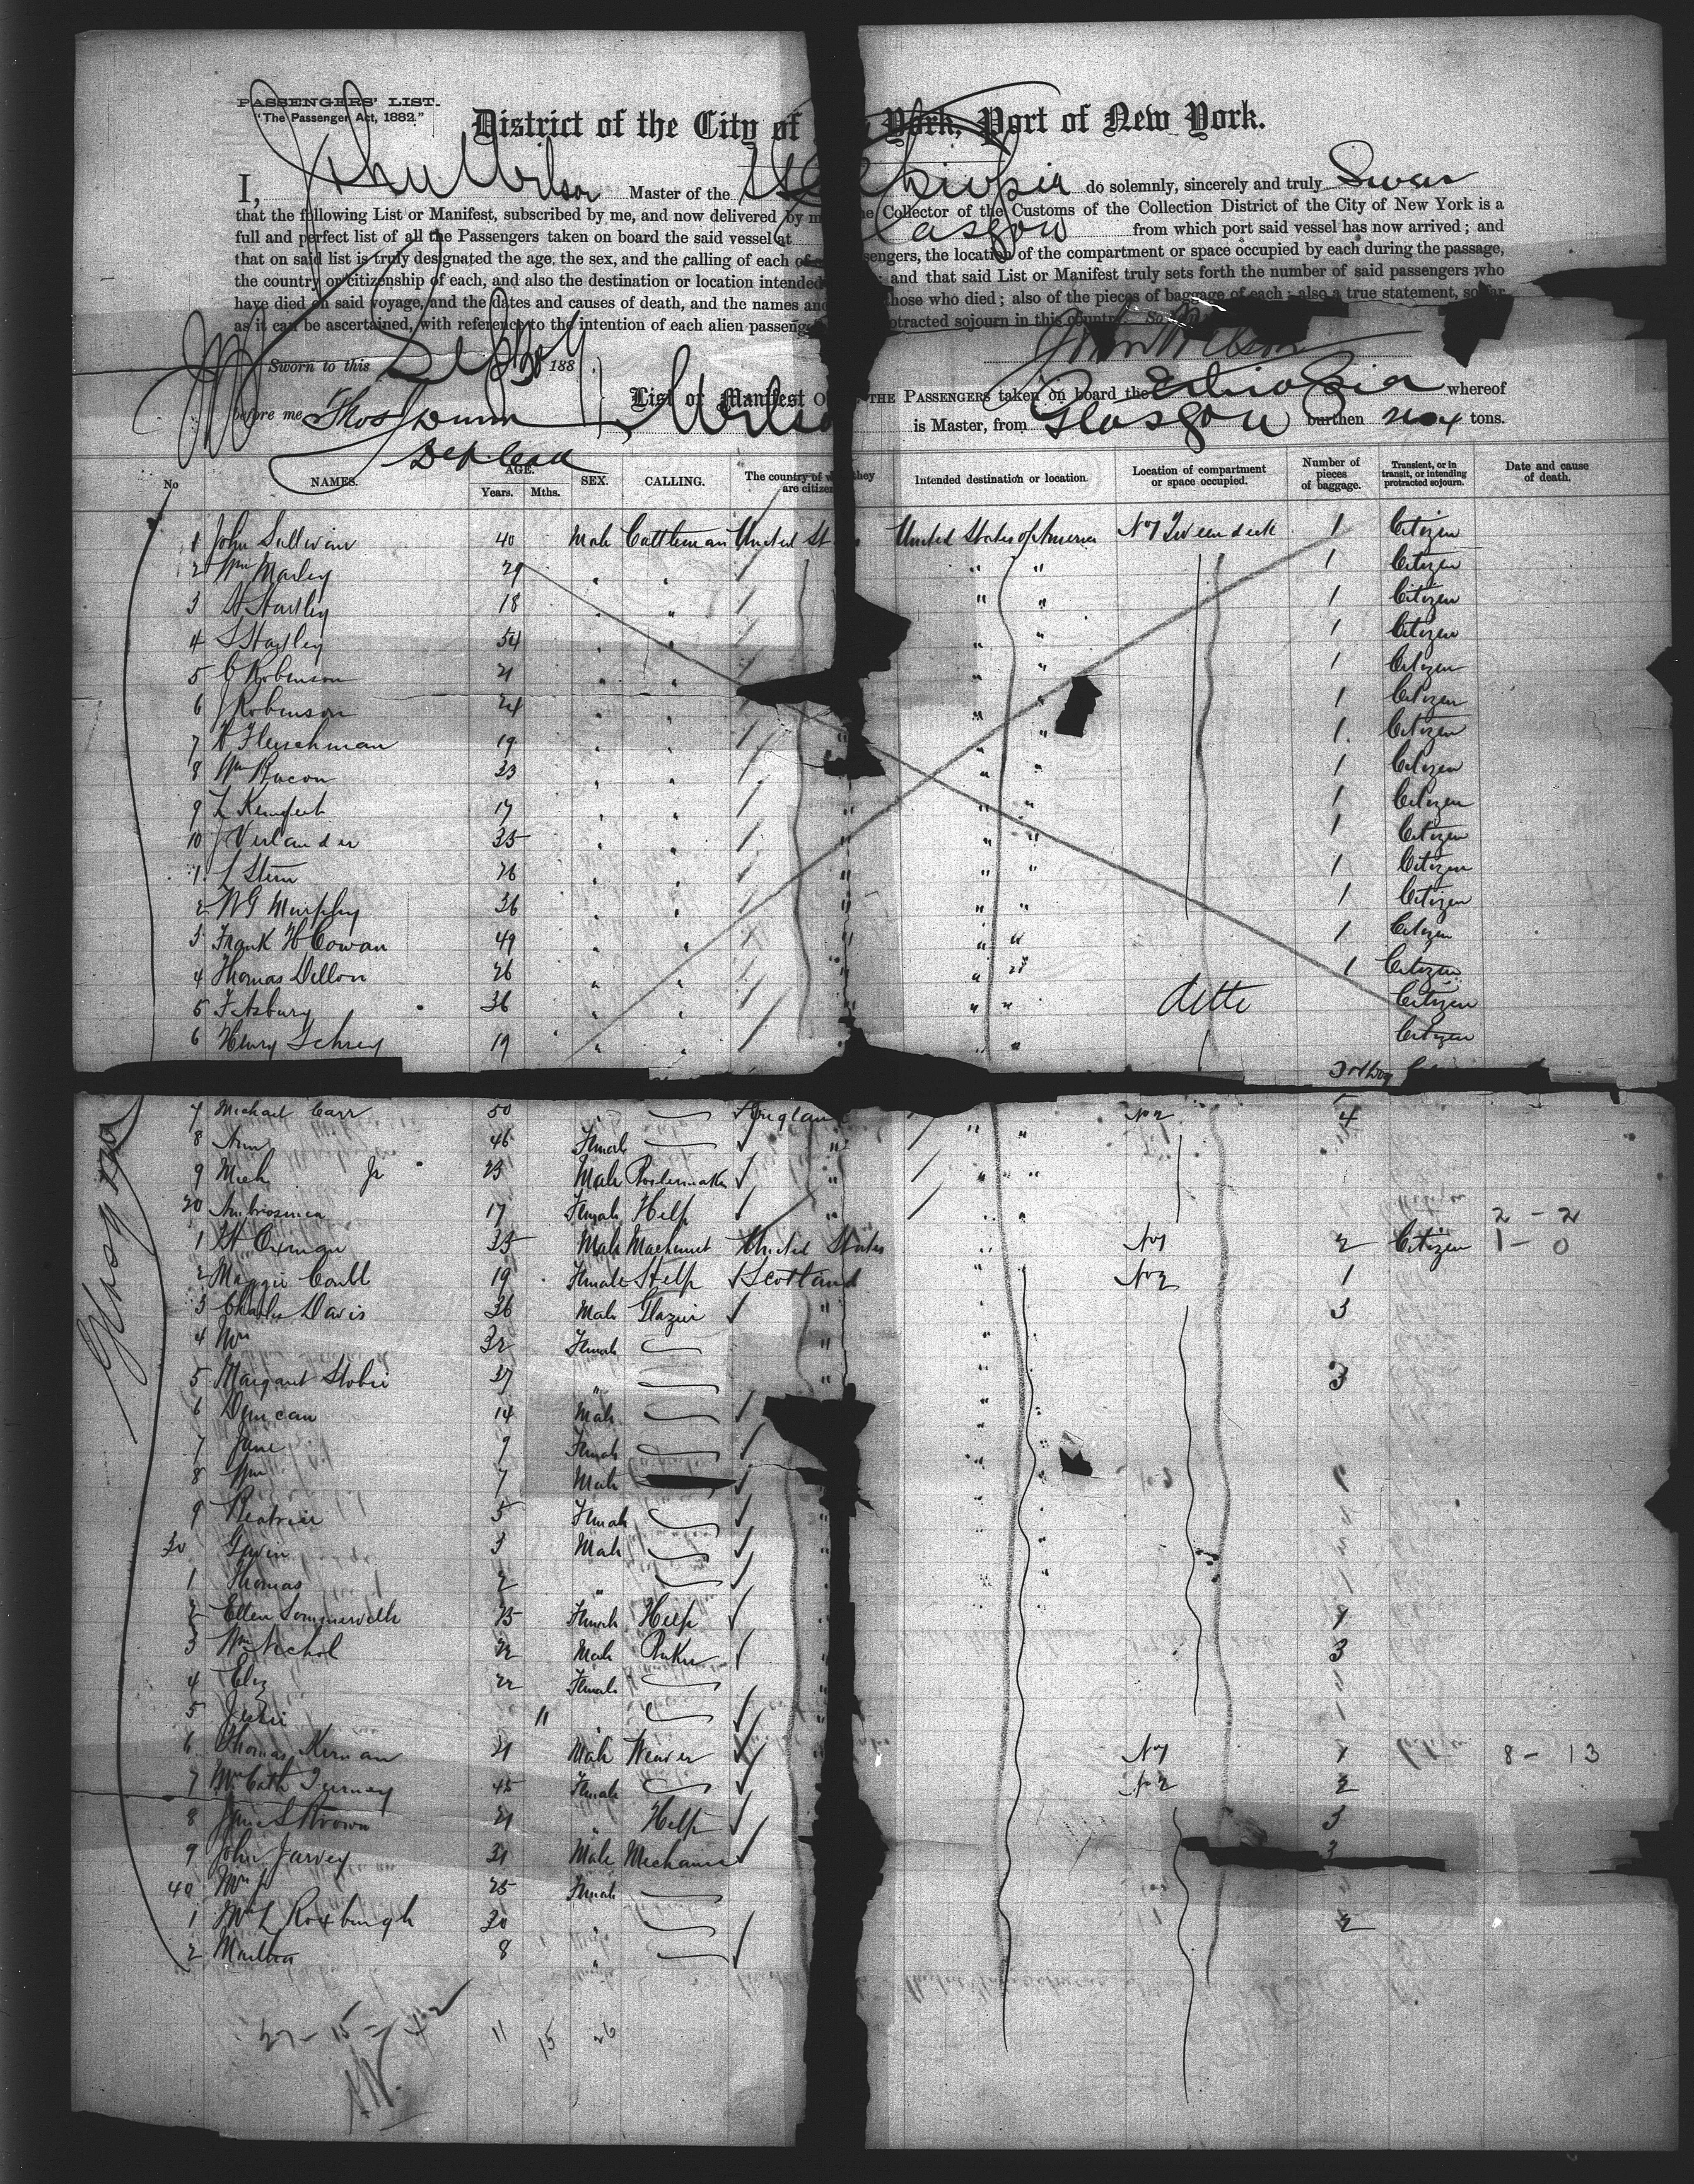 PASSENGERS' LIST.
"The Passenger Act, 1882."
District of the City of York, Port of New York.
I, John Wilson Master of the SS Ethiopia do solemnly, sincerely and truly Swear
that the following List or Manifest, subscribed by me, and now delivered by m he Collector of the Customs of the Collection District of the City of New York is a
full and perfect list of all the Passengers taken on board the said vessel at Glasgow from which port said vessel has now arrived; and
that on said list is truly designated the age, the sex, and the calling of each of sengers, the location of the compartment or space occupied by each during the passage,
the country of citizenship of each, and also the destination or location intended ; and that said List or Manifest truly sets forth the number of said passengers who
have died on said voyage, and the dates and causes of death, and the names and those who died; also of the pieces of baggage of each; also a true statement, so far
as it can be ascertained, with reference to the intention of each alien passenge otracted sojourn in this country. So
John Wilson
Sworn to this Sept 188
before me Thos Dunn
Dep Coll
List or Manifest OF THE PASSENGERS taken on board the Ethiopia whereof
Wilson is Master, from Glasgow burthen tons.
No NAMES. AGE. Years. Mths. SEX. CALLING. The country of w they are citizen Intended destination or location. Location of compartment or space occupied. Number of pieces of baggage. Transient, or in transit, or intending protracted sojourn. Date and cause of death.
1 John Sullivan 40 Male Cattleman United St United States of America No 1 Tween deck 1 Citizen
2 Wm Marley 29 " " " " 1 Citizen
3 Hartley 18 " " " " 1 Citizen
4 S Hartley 54 " " " 1 Citizen
5 C Robinson 21 " " " 1 Citizen
6 J Robinson 24 " " " 1 Citizen
7 Fleischman 19 " " " " " 1 Citizen
8 Wm Bacon 23 " " " " 1 Citizen
9 L 17 " " " " " 1 Citizen
10 J Verlander 35 " " " " " 1 Citizen
1 L Stern 26 " " " " " 1 Citizen
2 W G Murphy 36 " " " " " 1 Citizen
3 Frank H Cowan 49 " " " " " 1 Citizen
4 Thomas Dillon 26 " " " " " 1 Citizen
5 F Asbury 36 " " " " " ditto Citizen
6 Henry Schrey 19 " " " " Citizen
7 Michael Carr 50 " England No 2 4
8 Ann 46 Female " " "
9 Mich Jr 23 Male " " "
20 17 Female Help " "
2 - 2
1 35 Male Machinist United States " No 1 2 Citizen 1 - 0
2 Maggie Coull 19 Female Help Scotland No 2 1
3 Charles Davis 36 Male Glazier " " 3
4 Mrs 32 Female " "
5 Margaret Stobie 37 " " " 3
6 Duncan 14 Male " "
7 Jane 9 Female " "
8 Wm 7 Male " "
9 Beatrice 5 Female "
30 Gavin 3 Male " "
1 Thomas 2 " "
2 Ellen Sommerville 25 Female Help 1
3 Wm Nichol 22 Male Baker 3
4 Eliz 22 Female
5 Jessie 11 "
6 Thomas Kernan 21 Male Weaver No 1 1 8 - 13
7 Mrs Cath Turney 45 Female No 2 2
8 Jane S Brown 21 " Help 3
9 John Jarvey 31 Male Mechanic 3
40 Mrs 25 Female
1 Mrs L Roxburgh 30 " 2
2 Martha 8 "
Glasgow
27 - 15 = 42
11 15 26